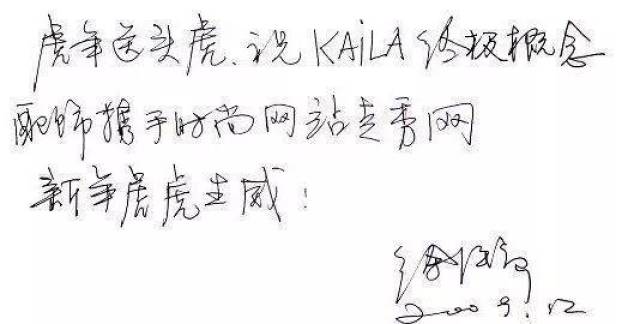 虎年送头虎、祝KAiLA终极概念
配饰携手时尚网站走秀网
新年虎虎生威！
2009.12